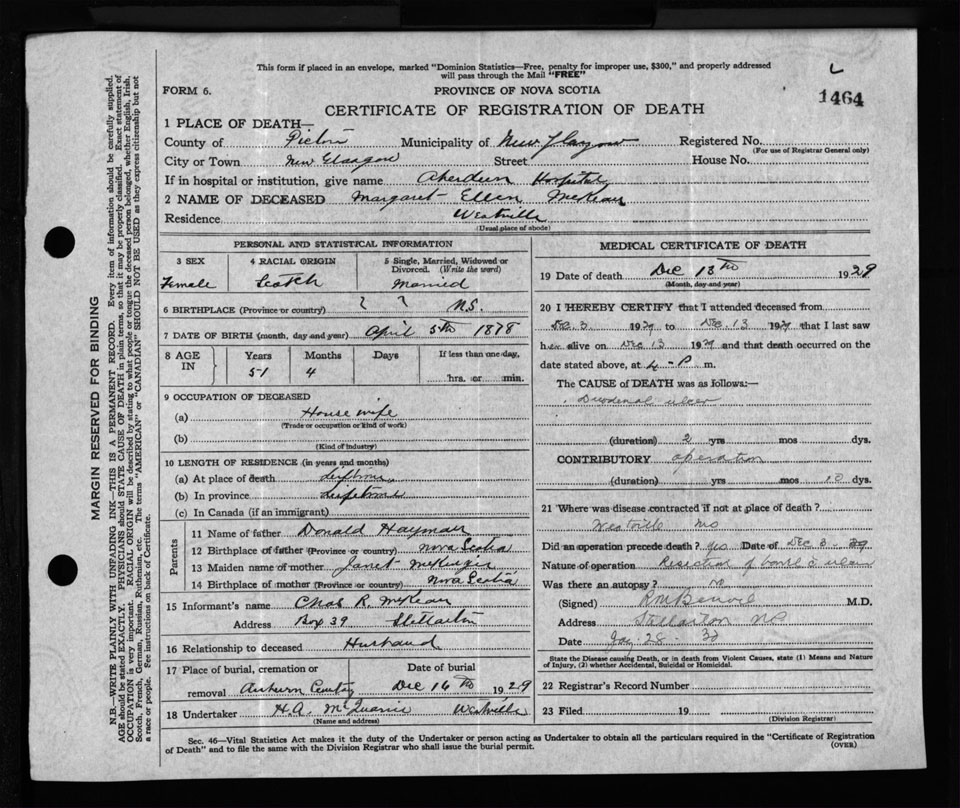 This form if placed in an envelope, marked "Dominion Statistics—Free, penalty for improper use, $300," and properly addressed
will pass through the Mail "FREE"
L
1464
FORM 6.
PROVINCE OF NOVA SCOTIA
CERTIFICATE OF REGISTRATION OF DEATH
1 PLACE OF DEATH—
County of Pictou Municipality of New Glasgow Registered No.
(For use of Registrar General only)
City or Town New Glasgow Street House No.
If in hospital or institution, give name Aberdeen Hospital
2 NAME OF DECEASED Margaret Ellen McKean
Residence Westville
(Usual place of abode)
PERSONAL AND STATISTICAL INFORMATION
3 SEX 4 RACIAL ORIGIN 5 Single, Married, Widowed or
Divorced. (Write the word)
Female Scotch Married
6 BIRTHPLACE (Province or country) ? ? N.S.
7 DATE OF BIRTH (month, day and year) April 5th 1878
8 AGE IN Years Months Days If less than one day,
51 4 hrs. or min.
9 OCCUPATION OF DECEASED
(a) House wife
(Trade or occupation or kind of work)
(b)
(Kind of industry)
10 LENGTH OF RESIDENCE (in years and months)
(a) At place of death Lifetime
(b) In province Lifetime
(c) In Canada (if an immigrant)
Parents
11 Name of father Donald Hayman
12 Birthplace of father (Province or country) Nova Scotia
13 Maiden name of mother Janet McKenzie
14 Birthplace of mother (Province or country) Nova Scotia
15 Informant's name Chas R. McKean
Address Box 39 Stellarton
16 Relationship to deceased Husband
17 Place of burial, cremation or Date of burial
removal Auburn Cemetry Dec 16th 1929
18 Undertaker H.A. McQuarrie Westville
(Name and address)
MEDICAL CERTIFICATE OF DEATH
19 Date of death Dec 13th 1929
(Month, day and year)
20 I HEREBY CERTIFY that I attended deceased from
Dec. 3 1929 to Dec. 13 1929 that I last saw
her alive on Dec 13 1929 and that death occurred on the
date stated above, at 4 - P m.
The CAUSE of DEATH was as follows:—
Duodenal ulcer
(duration) 2 yrs mos dys.
CONTRIBUTORY operation
(duration) yrs mos 10 dys.
21 Where was disease contracted if not at place of death?
Westville NS
Did an operation precede death? yes Date of Dec 3 - 29
Nature of operation Resection of bowel
Was there an autopsy? no
(Signed) M.D.
Address Stellarton NS
Date Jan - 28 - 30
State the Disease causing Death, or in death from Violent Causes, state (1) Means and Nature
of Injury, (2) whether Accidental, Suicidal or Homicidal.
22 Registrar's Record Number
23 Filed 19
(Division Registrar)
Sec. 46—Vital Statistics Act makes it the duty of the Undertaker or person acting as Undertaker to obtain all the particulars required in the "Certificate of Registration
of Death" and to file the same with the Division Registrar who shall issue the burial permit.
(OVER)
MARGIN RESERVED FOR BINDING
N.B.—WRITE PLAINLY WITH UNFADING INK—THIS IS A PERMANENT RECORD. Every item of information should be carefully supplied.
AGE should be stated EXACTLY. PHYSICIANS should STATE CAUSE OF DEATH in plain terms, so that it may be properly classified. Exact statement of
OCCUPATION is very important. RACIAL ORIGIN will be described by stating to what people or tongue the deceased person belonged, whether English, Irish,
Scotch, French, German, Russian, Ruthenian, etc. The terms "AMERICAN" or "CANADIAN" SHOULD NOT BE USED as they express citizenship but not
a race or people. See instructions on back of Certificate.